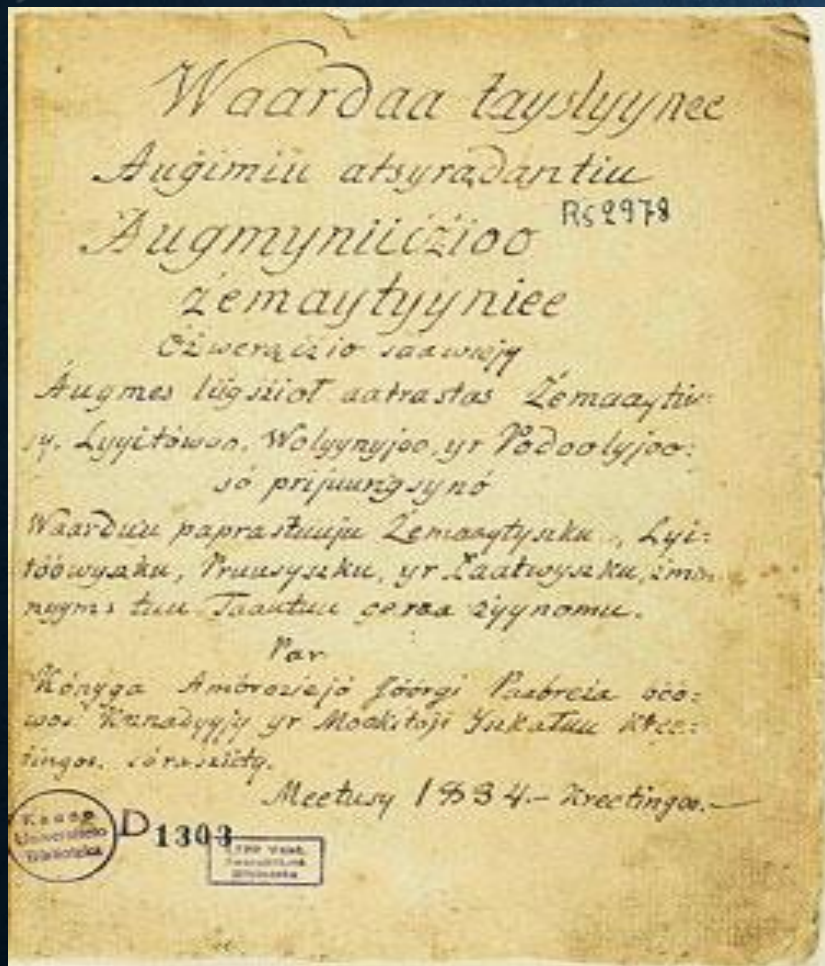 Waardaa łayslyynee
Augimiū atsyrądantiu
Rs 2978
Augmyniićzioo
żemaytyyniee
Augmes lūgszioł aatrastas Żemaaytiu=
sy, Lyyitówoo, Wolyynyjoo, yr Podoolyjoo=
só prijuungsynó
Waarduu paprastuuju Żemaaytyszku, Lyi=
tóówyszku, Pruusyszku, yr Łaatwyszku, żmo=
nyyms tuu Taautuu geraa żyynomu.
Par
Kónyga Ambroziejó Jóórgi Pabreża óóó=
wos Kunadyyjy yr Mookstoji Kree=
tingos. sóraszićty.
Meetusy 1834.— Kreetingoo.—
Kauno
Universiteto
Biblioteka
D 1303